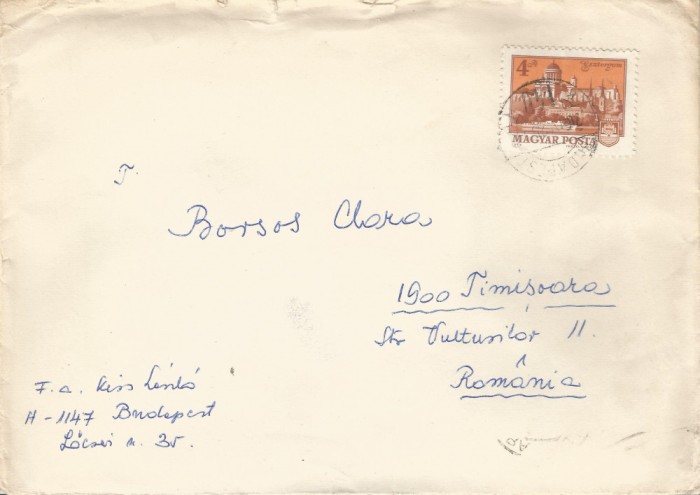 4 Ft Esztergom
MAGYAR POSTA
T.
Borsos Clara
1900 Timișoara
Str Vulturilor 11.
România
F.a. Kiss László
H-1147 Budapest
Lőcsei u. 35.